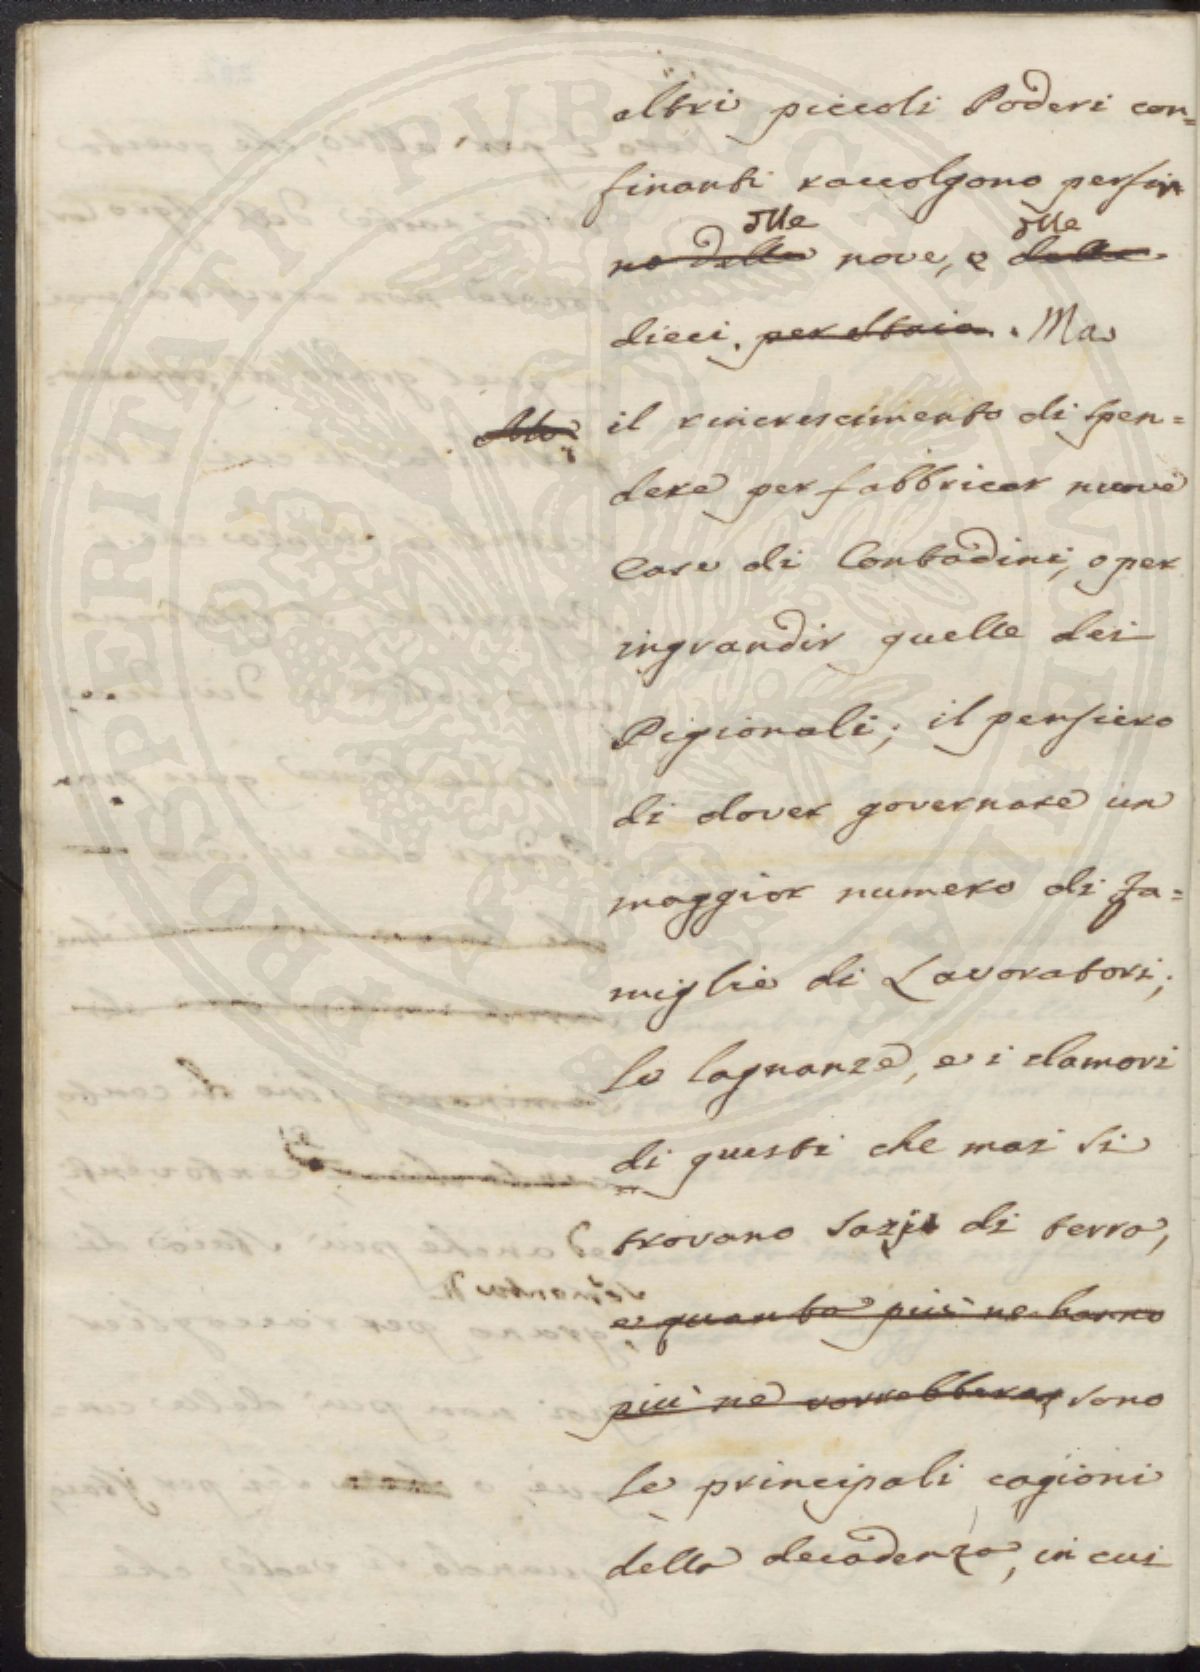 altri piccoli Poderi con=
finanti raccolgono perfin
alle alle
no delle nove, e delle
dieci. per staio. Ma
il rincrescimento di spen=
dere per fabbricar nuove
Case di Contadini, o per
ingrandir quelle dei
Pigionali; il pensiero
di dover governare un
maggior numero di Fa=
miglie di Lavoratori;
le lagnanze, e i clamori
di questi che mai si
trovano sazj di terra,
e quanta più ne hanno
più ne vorrebbero, sono
le principali cagioni
della decadenza, in cui
PROSPERITATI PUBLICAE AUGENDAE